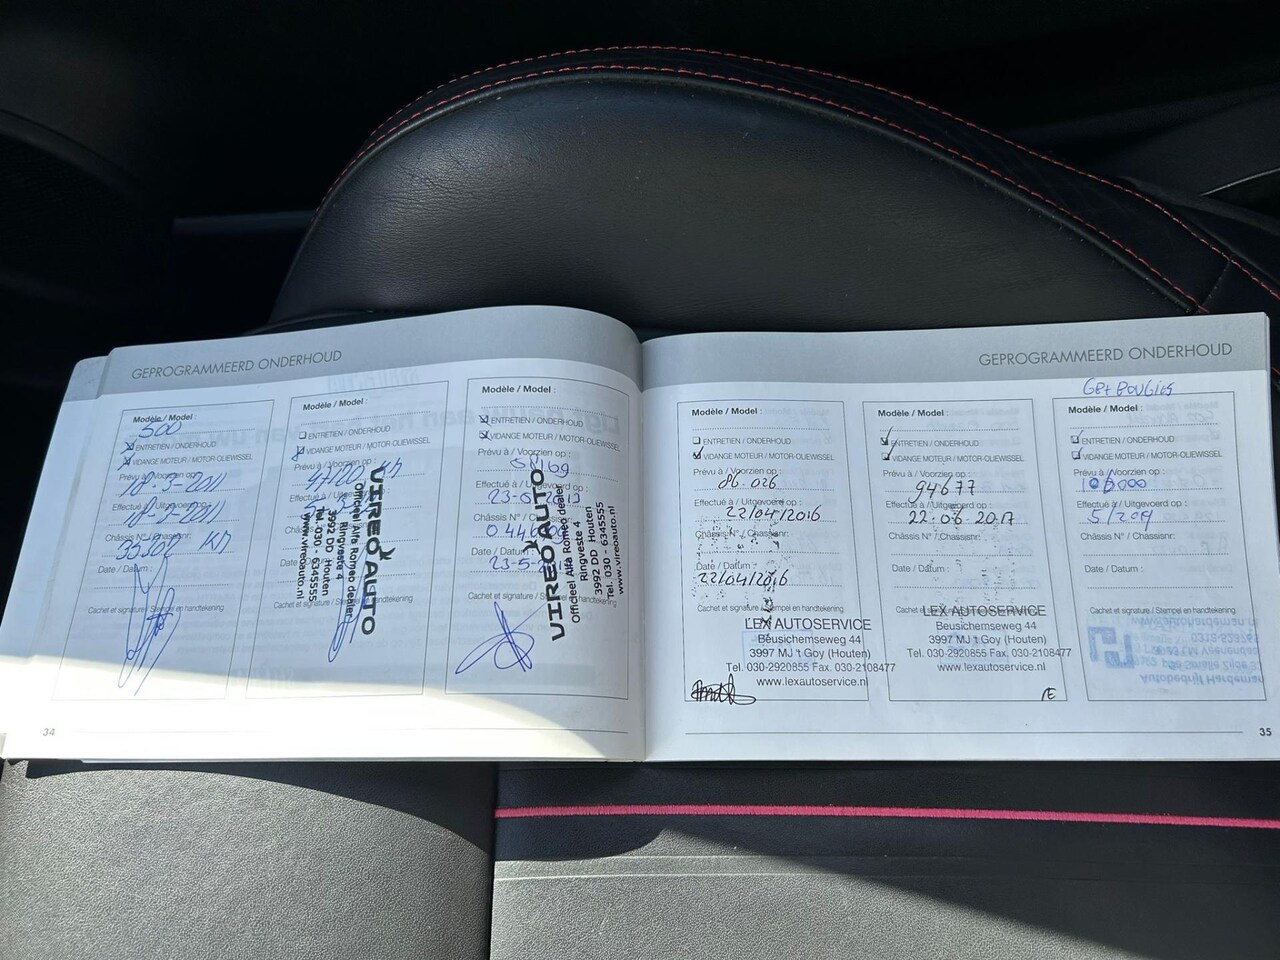 GEPROGRAMMEERD ONDERHOUD
Modèle / Model :
500
ENTRETIEN / ONDERHOUD
VIDANGE MOTEUR / MOTOR-OLIEWISSEL
Prévu à / Voorzien op :
18-3-2011
Effectué à / Uitgevoerd op :
18-3-2011
Châssis N° / Chassisnr:
Date / Datum :
Cachet et signature / Stempel en handtekening
Modèle / Model :
ENTRETIEN / ONDERHOUD
VIDANGE MOTEUR / MOTOR-OLIEWISSEL
VIREO AUTO
Officieel Alfa Romeo dealer
Ringveste 4
3992 DD Houten
Tel. 030 - 6345555
www.vireoauto.nl
Modèle / Model :
ENTRETIEN / ONDERHOUD
VIDANGE MOTEUR / MOTOR-OLIEWISSEL
Prévu à / Voorzien op :
Effectué à / Uitgevoerd op :
Châssis N° / Chassisnr:
Date / Datum :
VIREO AUTO
Officieel Alfa Romeo dealer
Ringveste 4
3992 DD Houten
Tel. 030 - 6345555
www.vireoauto.nl
34
GEPROGRAMMEERD ONDERHOUD
Modèle / Model :
ENTRETIEN / ONDERHOUD
VIDANGE MOTEUR / MOTOR-OLIEWISSEL
Prévu à / Voorzien op :
86.026
Effectué à / Uitgevoerd op :
22/04/2016
Châssis N° / Chassisnr:
Date / Datum :
22/04/2016
Cachet et signature / Stempel en handtekening
LEX AUTOSERVICE
Beusichemseweg 44
3997 MJ 't Goy (Houten)
Tel. 030-2920855 Fax. 030-2108477
www.lexautoservice.nl
Modèle / Model :
ENTRETIEN / ONDERHOUD
VIDANGE MOTEUR / MOTOR-OLIEWISSEL
Prévu à / Voorzien op :
94677
Effectué à / Uitgevoerd op :
22-06-2017
Châssis N° / Chassisnr:
Date / Datum :
Cachet et signature / Stempel en handtekening
LEX AUTOSERVICE
Beusichemseweg 44
3997 MJ 't Goy (Houten)
Tel. 030-2920855 Fax. 030-2108477
www.lexautoservice.nl
Modèle / Model :
ENTRETIEN / ONDERHOUD
VIDANGE MOTEUR / MOTOR-OLIEWISSEL
Prévu à / Voorzien op :
Effectué à / Uitgevoerd op :
Châssis N° / Chassisnr:
Date / Datum :
Cachet et signature / Stempel en handtekening
Autobedrijf Hardeman
35